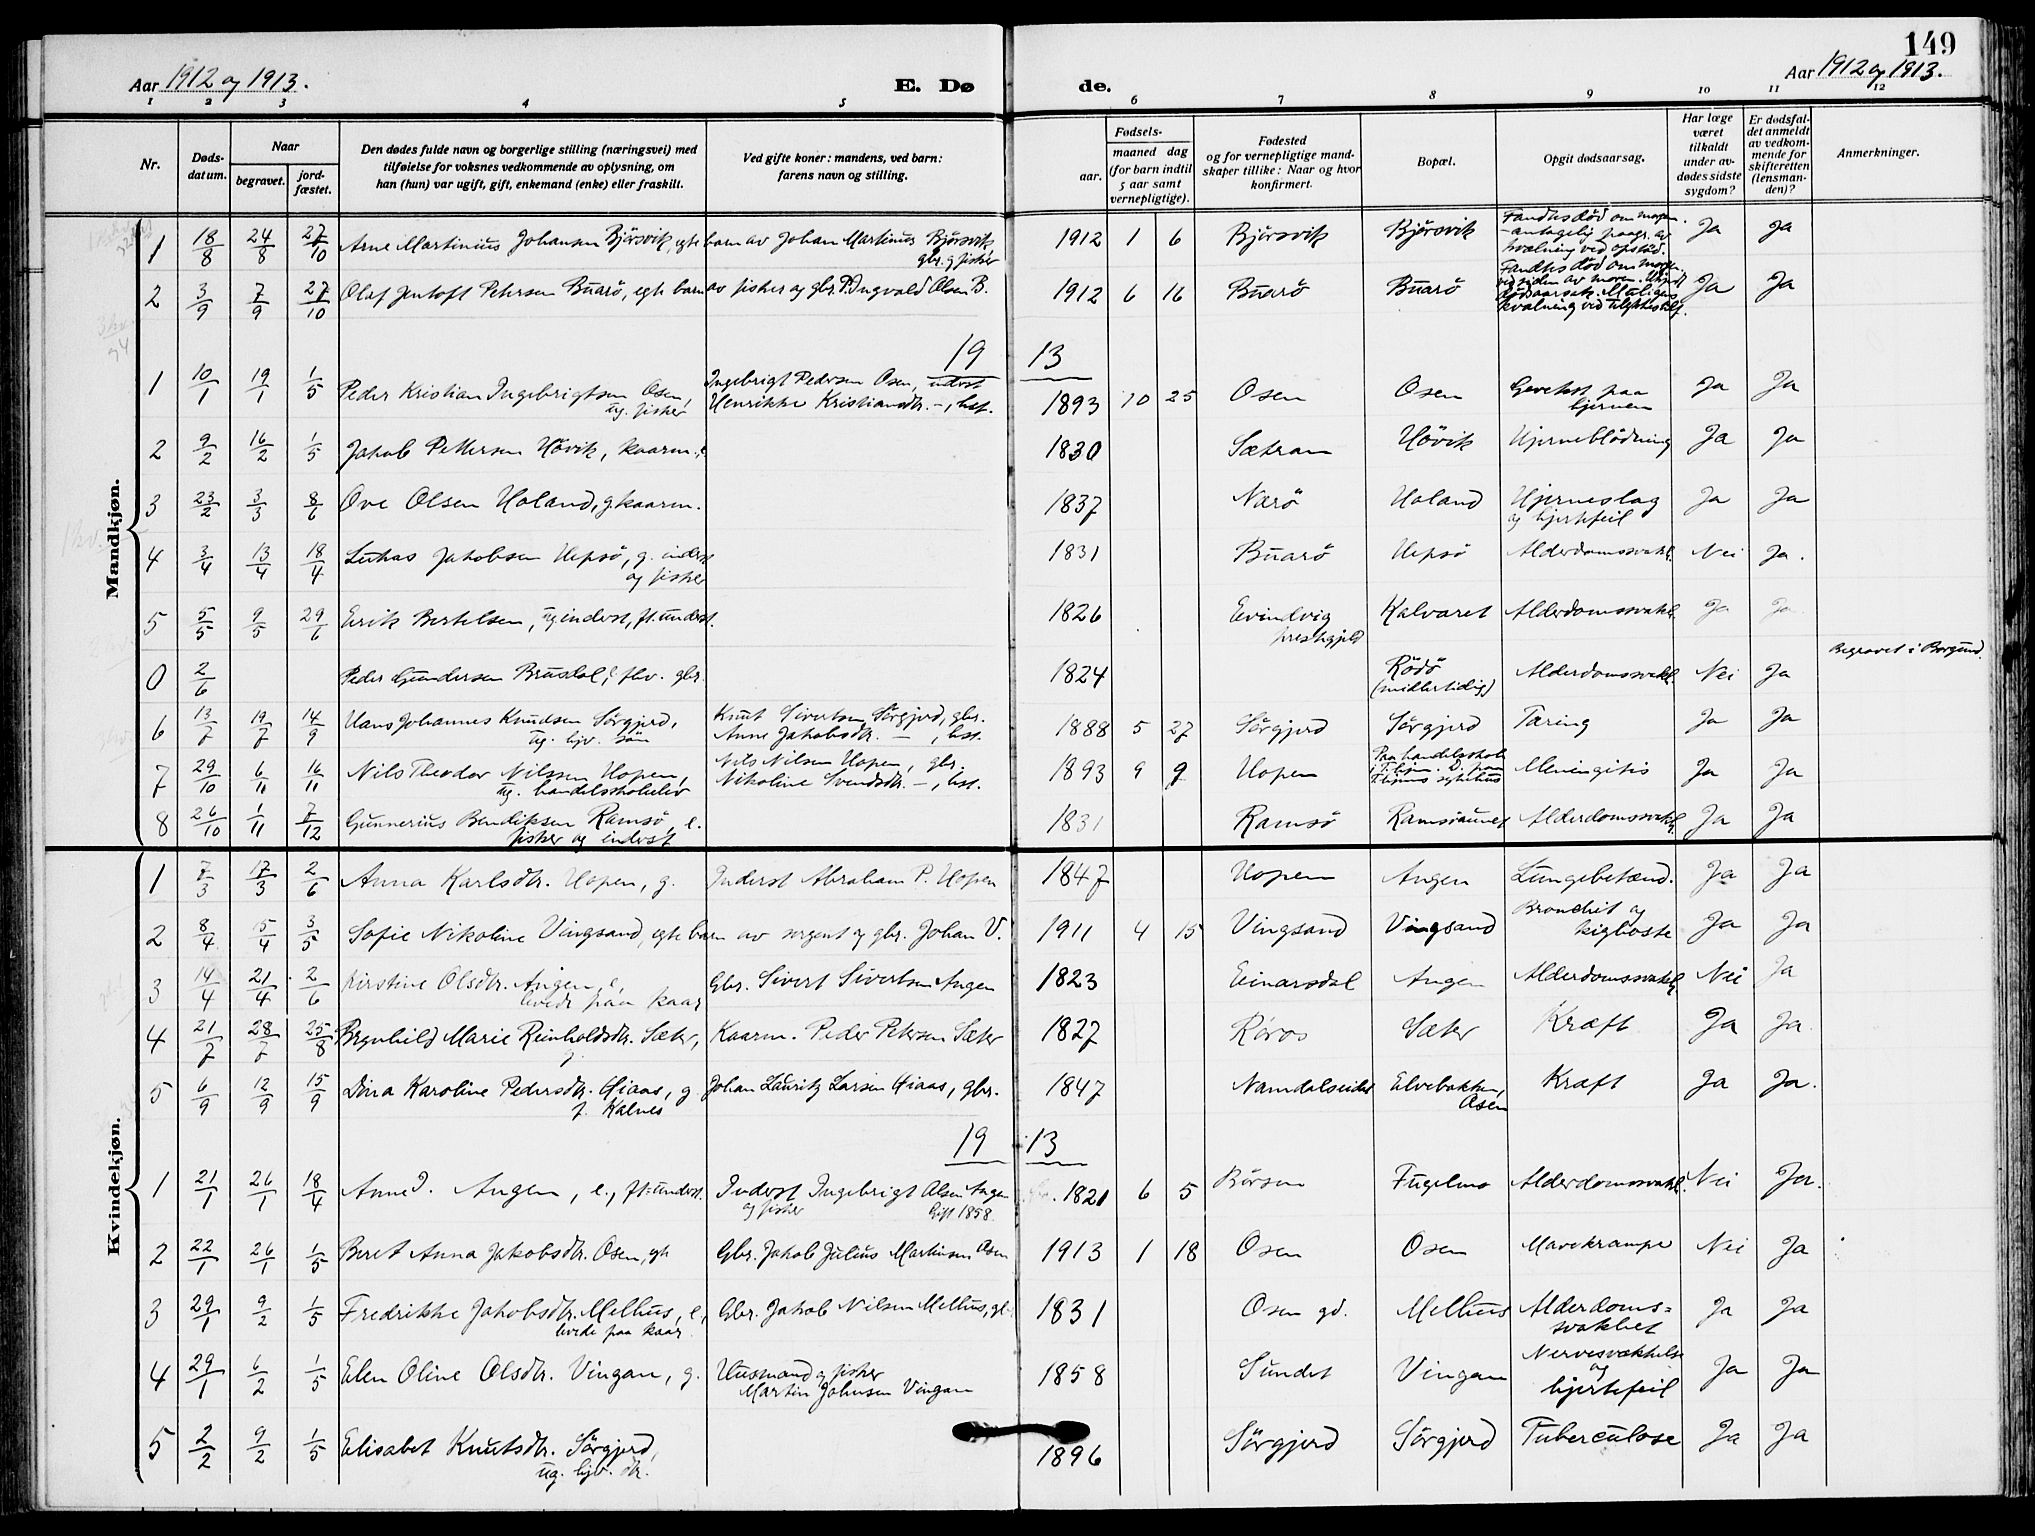 149
Aar 1912 og 1913.
E. Dø
de.
Aar 1912 og 1913.
1 2 3 4 5 6 7 8 9 10 11 12
Nr.
Døds-
datum.
Naar
begravet.
jord-
fæstet.
Den dødes fulde navn og borgerlige stilling (næringsvei) med
tilføielse for voksnes vedkommende av oplysning, om
han (hun) var ugift, gift, enkemand (enke) eller fraskilt.
Ved gifte koner: mandens, ved barn:
farens navn og stilling.
Fødsels-
aar.
maaned dag
(for barn indtil
5 aar samt
vernepligtige).
Fødested
og for vernepligtige mand-
skaper tillike: Naar og hvor
konfirmert.
Bopæl.
Opgit dødsaarsag.
Har læge
været
tilkaldt
under av-
dødes sidste
sygdom?
Er dødsfal-
det anmeldt
av vedkom-
mende for
skifteretten
(lensman-
den)?
Anmerkninger.
Mandkjøn.
1 18/8 24/8 27/10 Arne Martinius Johansen Bjørsvik, egte barn av Johan Martinus Bjørsvik, gbr. og fisker 1912 1 6 Bjørsvik Bjørsvik Fandtes død om morgen. - antagelig paagr. av kvælning ved opstød. Ja Ja
2 3/9 7/9 27/10 Olaf Jentoft Petersen Buarö, egte barn av fisker og gbr. P. Ingvald Olsen B. 1912 6 16 Buarö Buarö Fandtes død om morgen ved siden av moren. Ukjend dødsaarsak. Muligens kvælning ved Ja Ja
19 13
1 10/1 19/1 1/5 Peder Kristian Ingebrigtsen Osen, ug. fisker Ingebrigt Pedersen Osen, inderst Henrikke Kristiansdtr. —, hst. 1893 10 25 Osen Osen Gevekst paa hjernen Ja Ja
2 9/2 16/2 1/5 Jakob Pettersen Hövik, kaarm., e 1830 Sætran Hövik Hjerneblödning Ja Ja
3 23/2 3/3 8/6 Ove Olsen Holand, g. kaarm. 1837 Nærö Holand Hjerneslag og hjertefeil Ja Ja
4 3/4 13/4 18/4 Lukas Jakobsen Hepsö, g. inderst og fisker 1831 Buarö Hepsö Alderdomssvakh. Nei Ja.
5 5/5 9/5 29/6 Erik Bertelsen, ug inderst, ft. underst. 1826 Evindvig prestegjeld Kalvaret Alderdomssvakh. Ja Ja
0 2/6 Peder Gundersen Brusdal, e fhv. gbr. 1824 Rödö (midlertidig) Alderdomssvakh. Nei Ja Begravet i Borgund.
6 13/7 19/7 14/9 Hans Johannes Knudsen Sörgjerd, ug. hjv. sön Knut Sivertsen Sörgjerd, gbr. Anne Jakobsdtr. —, hst. 1888 5 27 Sörgjerd Sörgjerd Tæring Ja Ja
7 29/10 6/11 16/11 Nils Theodor Nilssen Hopen, ug. handelsskoleelev Nils Nilsen Hopen, gbr. Nikoline Svendsdtr. —, hst. 1893 9 9 Hopen Paa handelsskole i T.hjem. D. paa T.hjems sykehus Meningitis Ja Ja
8 26/10 1/11 7/12 Gunnerius Bendiksen Ramsö, e. fisker og inderst 1831 Ramsö Ramsöaunet Alderdomssvakh. Ja Ja
Kvindekjøn.
1 7/3 17/3 2/6 Anna Karlsdtr. Hopen, g. Inderst Abraham P. Hopen 1847 Hopen Angen Lungebetænd. Ja Ja
2 8/4 15/4 3/5 Sofie Nikoline Vingsand, egte barn av sergent og gbr. Johan V. 1911 4 15 Vingsand Vingsand Bronchit og kighoste Ja Ja
3 14/4 21/4 2/6 Kirstine Olsdtr. Angen, e, levde paa kaar Gbr. Sivert Sivertsen Angen 1823 Einarsdal Angen Alderdomssvakh. Nei Ja
4 21/7 28/7 25/8 Brynhild Marie Reinholdsdtr. Sæter, Kaarm. Peder Petersen Sæter 1827 Röros Sæter Kræft Ja Ja.
5 6/9 12/9 15/9 Dina Karoline Pedersdtr. Hiaas, g f. Kalnes Johan Lauritz Larsen Hiaas, gbr. 1847 Namdalseidet Elvebakken, Osen Kræft Ja Ja.
19 13
1 21/1 26/1 18/4 Anne J. Angen, e., ft. underst. Inderst Ingebrigt Olsen Angen og fisker Gift 1858 1821 6 5 Börsen Fugelmo Alderdomssvakh. Nei Ja.
2 22/1 26/1 1/5 Beret Anna Jakobsdtr. Osen, gh Gbr. Jakob Julius Martinsen Osen 1913 1 18 Osen Osen Mavekrampe Nei Ja
3 29/1 9/2 1/5 Fredrikke Jakobsdtr. Melhus, e, levde paa kaar. Gbr. Jakob Nilsen Melhus, gbr. 1831 Osen gd. Melhus Alderdoms-svakhet Ja Ja
4 29/1 6/2 1/5 Elen Oline Olsdtr. Vingan, g. Husmand og fisker Martin Johnsen Vingan 1858 Sundet Vingan Nervesvækkelse og hjertefeil Ja Ja
5 2/2 9/2 1/5 Elisabet Knutsdtr. Sörgjerd, ug. hjv. dtr. 1896 Sörgjerd Sörgjerd Tuberculose Ja Ja